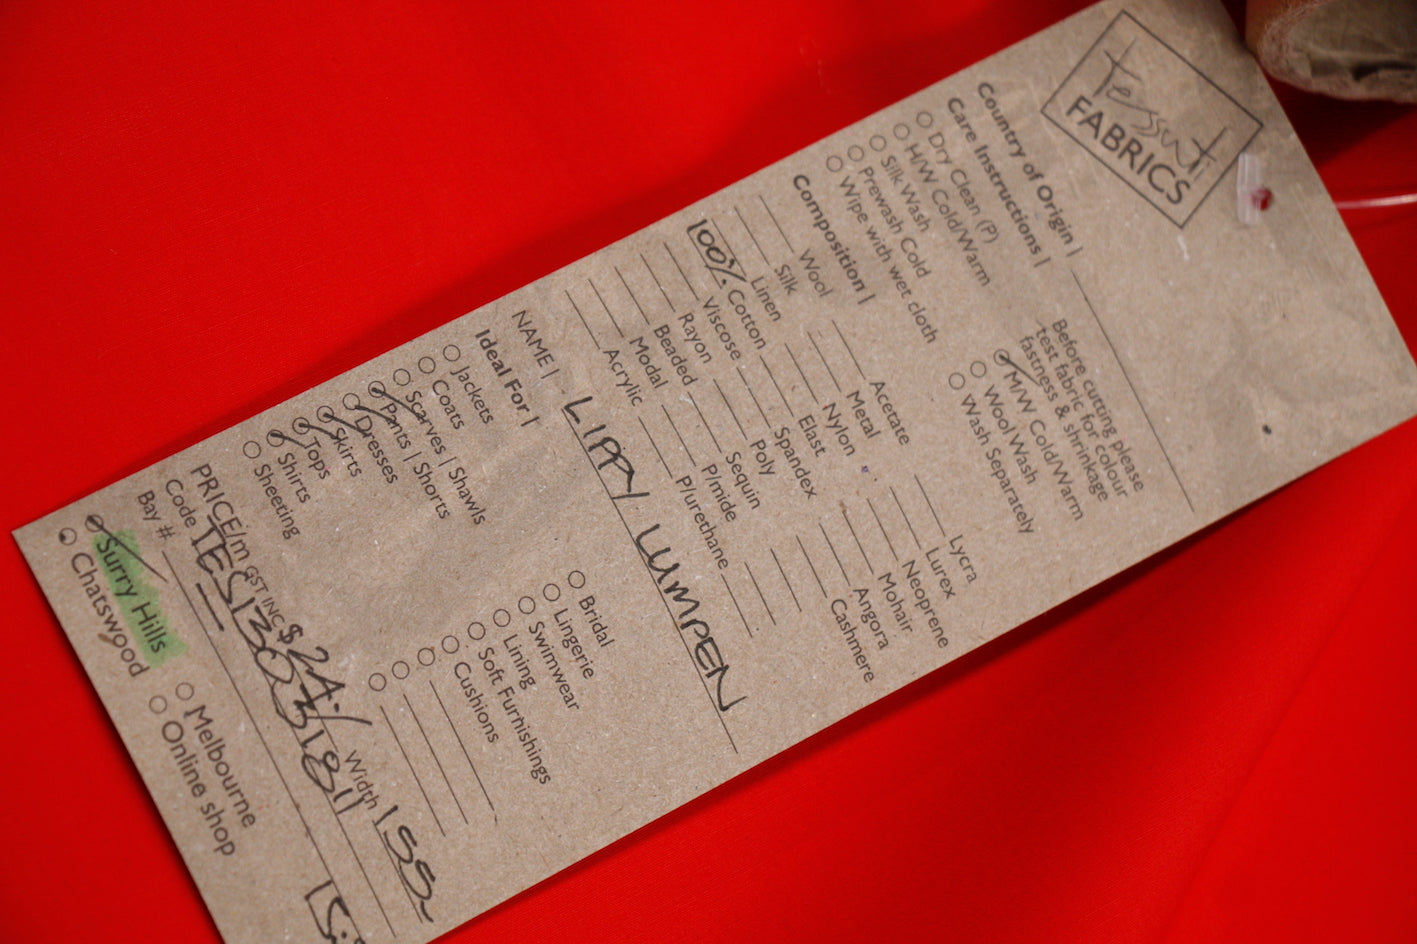 tessuti
FABRICS
Country of Origin |
Care Instructions |
Dry Clean (P)
H/W Cold/Warm
Silk Wash
Prewash Cold
Wipe with wet cloth
Before cutting please
test fabric for colour
fastness & shrinkage
M/W Cold/Warm
Wool Wash
Wash Separately
Composition |
Wool
Silk
Linen
100% Cotton
Viscose
Rayon
Beaded
Modal
Acrylic
Acetate
Metal
Nylon
Elast
Spandex
Poly
Sequin
P/mide
P/urethane
Lycra
Lurex
Neoprene
Mohair
Angora
Cashmere
NAME | LIPPY LUMPEN
Ideal For |
Jackets
Coats
Scarves | Shawls
Pants | Shorts
Dresses
Skirts
Tops
Shirts
Sheeting
Bridal
Lingerie
Swimwear
Lining
Soft Furnishings
Cushions
PRICE/m GST INC $24.- Width 155
Code
Bay #
Surry Hills
Chatswood
Melbourne
Online shop